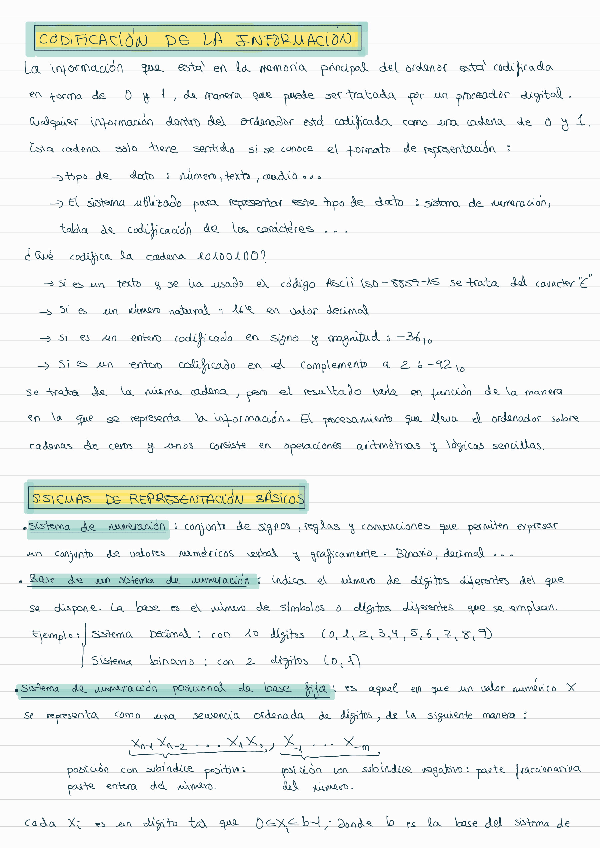 CODIFICACIÓN DE LA INFORMACIÓN
La información que está en la memoria principal del ordenor está codificada
en forma de 0 y 1, de manera que puede ser tratada por un procesador digital.
Cualquier información dentro del ordenador está codificada como una cadena de 0 y 1.
Esta cadena solo tiene sentido si se conoce el formato de representación:
→ tipo de dato: número, texto, audio...
→ El sistema utilizado para representar este tipo de dato: sistema de numeración,
tabla de codificación de los carácteres...
¿Qué codifica la cadena 10100100?
→ Si es un texto y se ha usado el código Ascii ISO-8859-15 se trata del caracter "€"
→ Si es un número natural: 164 en valor decimal
→ Si es un entero codificado en signo y magnitud: -36₁₀
→ Si es un entero codificado en el complemento a 2: -92₁₀
Se trata de la misma cadena, pero el resultado varía en función de la manera
en la que se representa la información. El procesamiento que lleva el ordenador sobre
cadenas de ceros y unos consiste en operaciones aritméticas y lógicas sencillas.
SISTEMAS DE REPRESENTACIÓN BÁSICOS
• Sistema de numeración: conjunto de signos, reglas y convenciones que permiten expresar
un conjunto de valores numéricos verbal y gráficamente. Binario, decimal...
• Base de un sistema de numeración: indica el número de dígitos diferentes del que
se dispone. La base es el número de símbolos o dígitos diferentes que se emplean.
Ejemplo: Sistema Decimal: con 10 dígitos (0,1,2,3,4,5,6,7,8,9)
Sistema binario: con 2 dígitos (0,1)
• Sistema de numeración posicional de base fija: es aquel en que un valor numérico X
se representa como una secuencia ordenada de dígitos, de la siguiente manera:
Xn-1 Xn-2 ... X1 X0, X-1 ... X-m
posición con subíndice positivo: posición con subíndice negativo: parte fraccionaria
parte entera del número. del número.
Cada Xi es un dígito tal que 0≤Xi≤b-1, Donde b es la base del sistema de